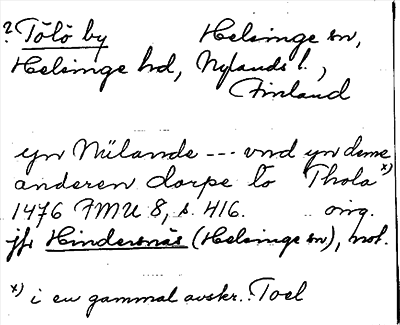 ? Tölö by Helsinge sn,
Helsinge hd, Nylands l.,
Finland
yn Nülande --- vnd yn deme
anderen dorpe to Thola x)
1476 FMU 8, s. 416. orig.
jfr Hindersnäs (Helsinge sn), not.
x) i en gammal avskr. Toel